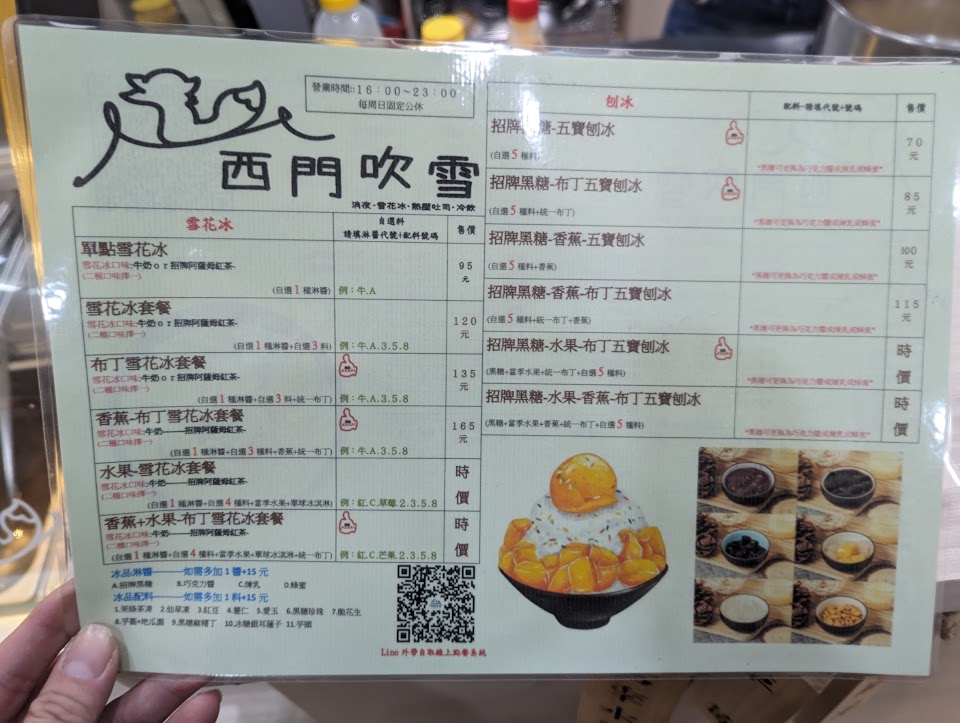 營業時間::16:00~23:00
每周日固定公休
西門吹雪
消夜·雪花冰·熱壓吐司·冷飲
雪花冰
自選料
請填淋醬代號+配料號碼
售價
單點雪花冰
雪花冰口味:牛奶or招牌阿薩姆紅茶-
(二種口味擇一)
(自選1種淋醬)
例:牛.A
95元
雪花冰套餐
雪花冰口味:牛奶or招牌阿薩姆紅茶-
(二種口味擇一)
(自選1種淋醬+自選3料)
例:牛.A.3.5.8
120元
布丁雪花冰套餐
雪花冰口味:牛奶or招牌阿薩姆紅茶-
(二種口味擇一)
(自選1種淋醬+自選3料+統一布丁)
例:牛.A.3.5.8
135元
香蕉-布丁雪花冰套餐
雪花冰口味:牛奶-------招牌阿薩姆紅茶-
(二種口味擇一)
(自選1種淋醬+自選3種料+香蕉+統一布丁)
例:牛.A.3.5.8
165元
水果-雪花冰套餐
雪花冰口味:牛奶-------招牌阿薩姆紅茶-
(二種口味擇一)
(自選1種淋醬+自選4種料+當季水果+單球冰淇淋)
例:紅.C.草莓.2.3.5.8
時價
香蕉+水果-布丁雪花冰套餐
雪花冰口味:牛奶-------招牌阿薩姆紅茶-
(二種口味擇一)
(自選1種淋醬+自選4種料+當季水果+單球冰淇淋+統一布丁)
例:紅.C.芒果.2.3.5.8
時價
冰品淋醬----------如需多加1醬+15元
A.招牌黑糖 B.巧克力醬 C.煉乳 D.蜂蜜
冰品配料----------如需多加1料+15元
1.茉綠茶凍 2.仙草凍 3.紅豆 4.薏仁 5.愛玉 6.黑糖珍珠 7.脆花生
8.芋圓+地瓜圓 9.黑糖麻糬丁 10.冰糖銀耳蓮子 11.芋頭
Line外帶自取線上點餐系統
刨冰
配料-請填代號+號碼
售價
招牌黑糖-五寶刨冰
(自選5種料)
*黑糖可更換為巧克力醬或煉乳或蜂蜜*
70元
招牌黑糖-布丁五寶刨冰
(自選5種料+統一布丁)
*黑糖可更換為巧克力醬或煉乳或蜂蜜*
85元
招牌黑糖-香蕉-五寶刨冰
(自選5種料+香蕉)
*黑糖可更換為巧克力醬或煉乳或蜂蜜*
100元
招牌黑糖-香蕉-布丁五寶刨冰
(自選5種料+統一布丁+香蕉)
*黑糖可更換為巧克力醬或煉乳或蜂蜜*
115元
招牌黑糖-水果-布丁五寶刨冰
(黑糖+當季水果+統一布丁+自選5種料)
*黑糖可更換為巧克力醬或煉乳或蜂蜜*
時價
招牌黑糖-水果-香蕉-布丁五寶刨冰
(黑糖+當季水果+香蕉+統一布丁+自選5種料)
*黑糖可更換為巧克力醬或煉乳或蜂蜜*
時價